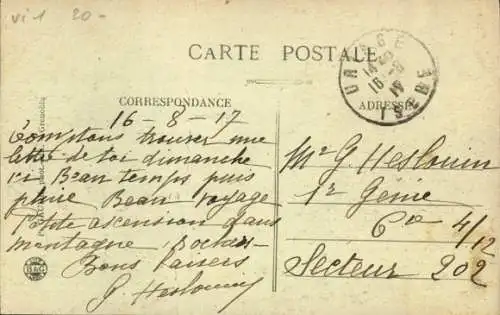 vi 1 20-
CARTE POSTALE
CORRESPONDANCE
ADRESSE
URIAGE
ISERE
14 30
16 -8
17
16-8-17
Comptons trouver une
lettre de toi dimanche
ici Beau temps puis
pluie Beau voyage
Petite ascension dans
montagne Rocher
Bons baisers
G. Heslouin
Mr G. Heslouin
1r Genie
Cie 4/12
Secteur 202
B&G